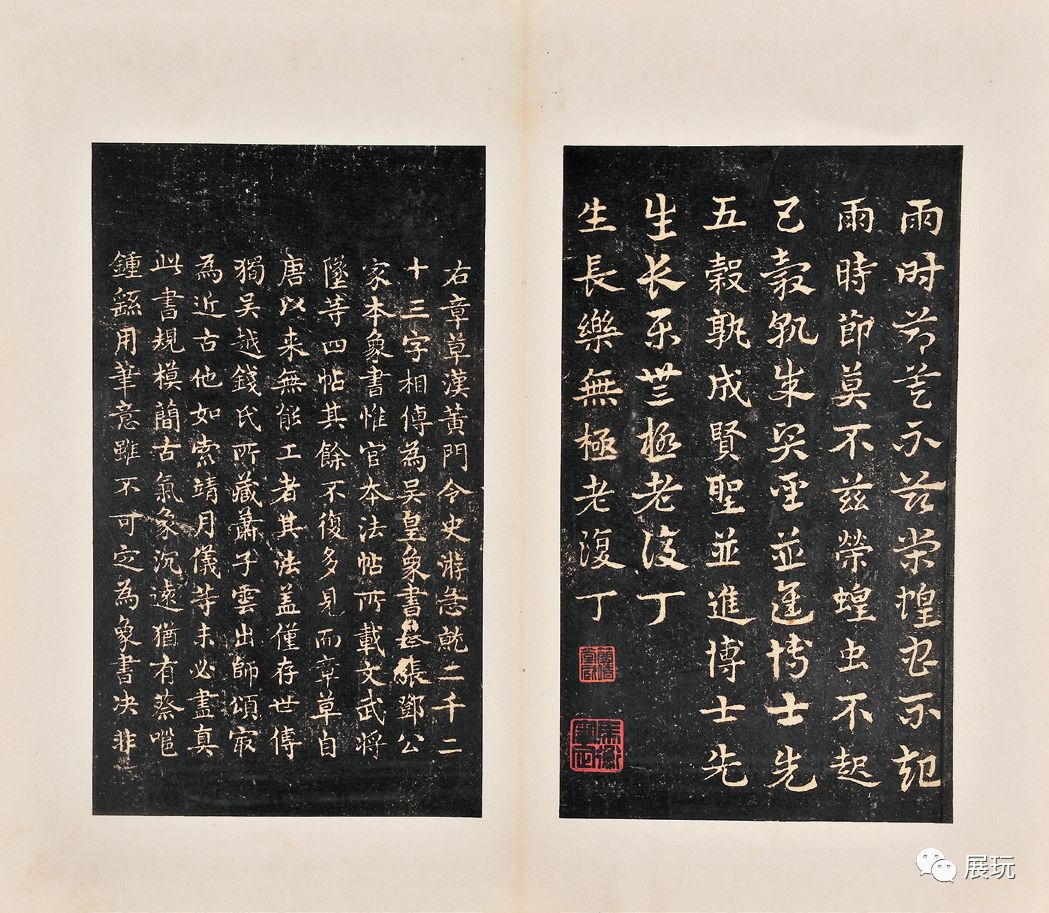 雨时节莫不兹荣蝗虫不起
雨時節莫不兹榮蝗虫不起
五穀孰成贤圣並進博士先
五穀孰成賢聖並進博士先
生长乐無極老復丁
生長樂無極老復丁
右章草漢黃門令史游急就二千二
十三字相傳為吳皇象書張鄧公
家本象書惟官本法帖所載文武將
墜等四帖其餘不復多見而章草自
唐以来無能工者其法盖僅存世傳
獨吳越錢氏所藏蕭子雲出師頌㝡
為近古他如索靖月儀等未必盡真
此書規模簡古氣象沉遠猶有蔡邕
鍾繇用筆意雖不可定為象書决非
展玩